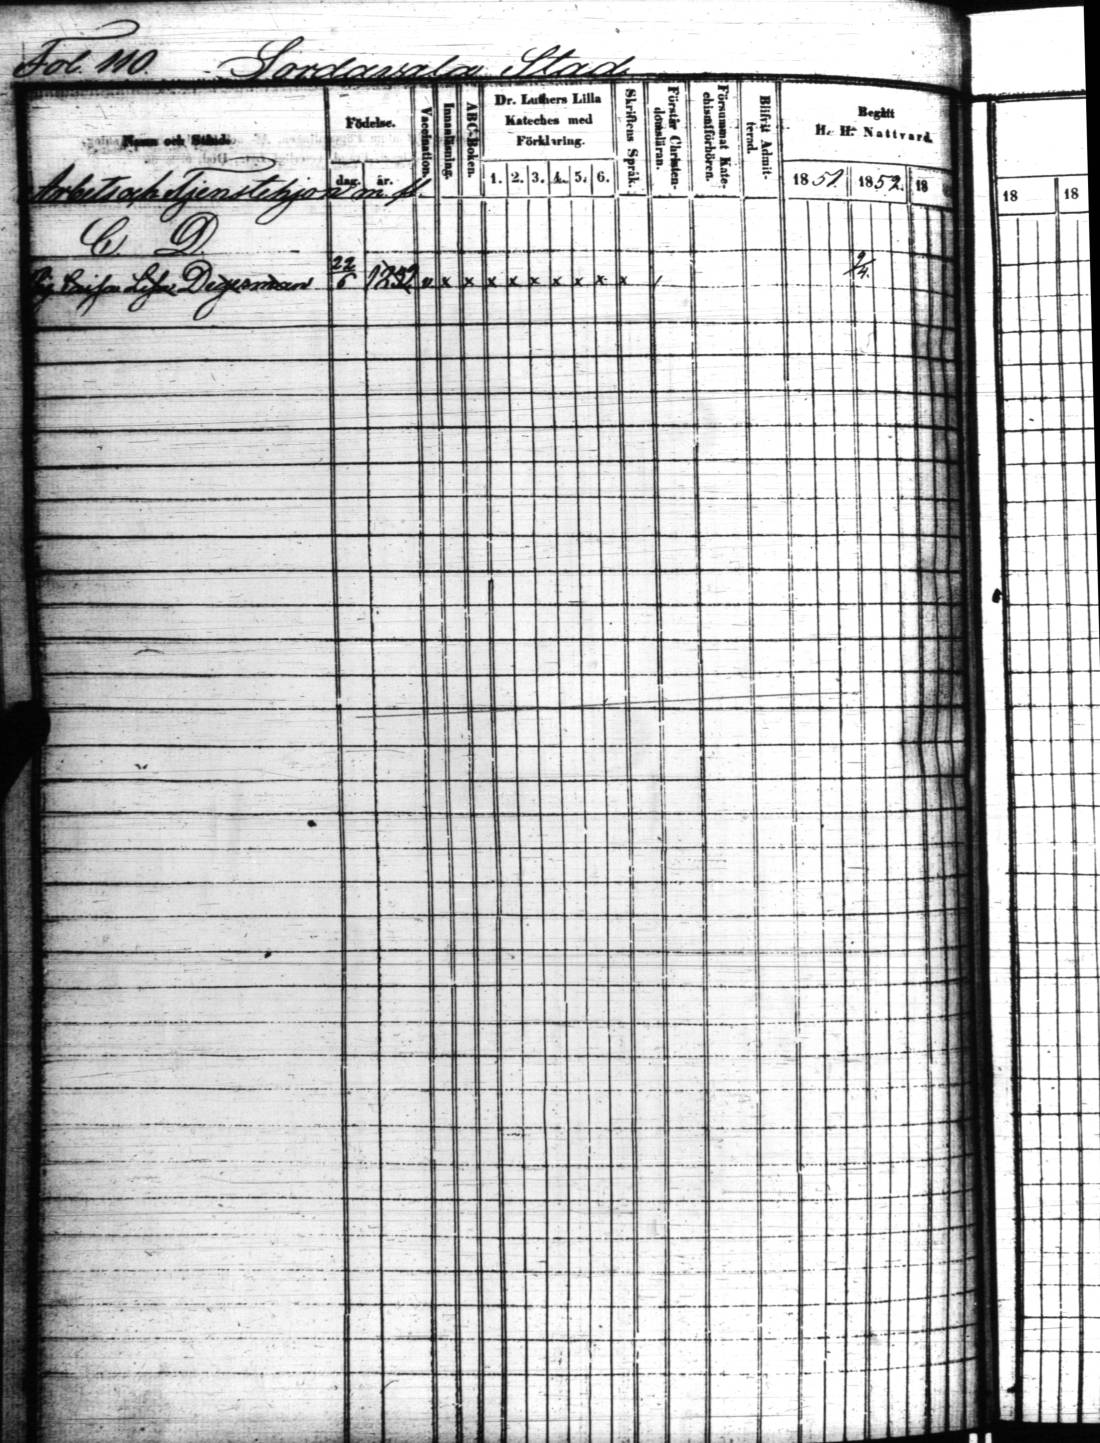 Fol. 110. Sordavala Stad
Namn och Stånd.
Födelse.
dag. år.
Vaccination.
Innanläsning.
ABC-Boken.
Dr. Luthers Lilla
Kateches med
Förklaring.
1. 2. 3. 4. 5. 6.
Skriftens Språk.
Förstår Christen-
domsläran.
Försummat Kate-
chismiförhören.
Blifvit Admit-
terad.
Begått
H. H. Nattvard.
1851. 1852. 18
18 18
Arbets och Tjenstehjon m. fl.
C. D.
Degerman 22/6 v x x x x x x x x x / 9/4